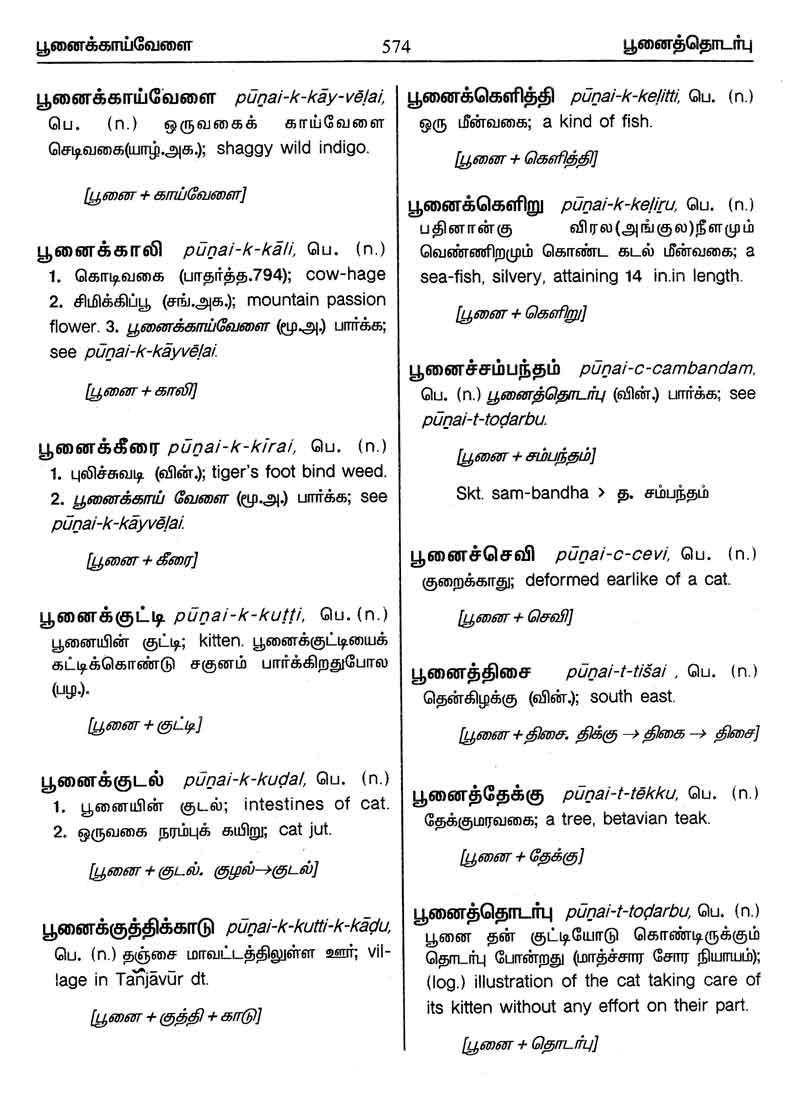 பூனைக்காய்வேளை 574 பூனைத்தொடர்பு
பூனைக்காய்வேளை pūṉai-k-kāy-vēḷai,
பெ. (n.) ஒருவகைக் காய்வேளை
செடிவகை(யாழ்.அக.); shaggy wild indigo.
[பூனை + காய்வேளை]
பூனைக்காலி pūṉai-k-kāli, பெ. (n.)
1. கொடிவகை (பாதர்த்த.794); cow-hage
2. சிமிக்கிப்பூ (சங்.அக.); mountain passion
flower. 3. பூனைக்காய்வேளை (மூ.அ.) பார்க்க;
see pūṉai-k-kāyvēḷai.
[பூனை + காலி]
பூனைக்கீரை pūṉai-k-kīrai, பெ. (n.)
1. புலிச்சுவடி (வின்.); tiger's foot bind weed.
2. பூனைக்காய் வேளை (மூ.அ.) பார்க்க; see
pūṉai-k-kāyvēḷai.
[பூனை + கீரை]
பூனைக்குட்டி pūṉai-k-kuṭṭi, பெ. (n.)
பூனையின் குட்டி; kitten. பூனைக்குட்டியைக்
கட்டிக்கொண்டு சகுனம் பார்க்கிறதுபோல
(பழ.).
[பூனை + குட்டி]
பூனைக்குடல் pūṉai-k-kuḍal, பெ. (n.)
1. பூனையின் குடல்; intestines of cat.
2. ஒருவகை நரம்புக் கயிறு; cat jut.
[பூனை + குடல். குழல்→குடல்]
பூனைக்குத்திக்காடு pūṉai-k-kutti-k-kāḍu,
பெ. (n.) தஞ்சை மாவட்டத்திலுள்ள ஊர்; vil-
lage in Tañjāvūr dt.
[பூனை + குத்தி + காடு]
பூனைக்கெளித்தி pūṉai-k-keḷitti, பெ. (n.)
ஒரு மீன்வகை; a kind of fish.
[பூனை + கெளித்தி]
பூனைக்கெளிறு pūṉai-k-keḷiṟu, பெ. (n.)
பதினான்கு விரல(அங்குல)நீளமும்
வெண்ணிறமும் கொண்ட கடல் மீன்வகை; a
sea-fish, silvery, attaining 14 in.in length.
[பூனை + கெளிறு]
பூனைச்சம்பந்தம் pūṉai-c-cambandam,
பெ. (n.) பூனைத்தொடர்பு (வின்.) பார்க்க; see
pūṉai-t-toḍarbu.
[பூனை + சம்பந்தம்]
Skt. sam-bandha > த. சம்பந்தம்
பூனைச்செவி pūṉai-c-cevi, பெ. (n.)
குறைக்காது; deformed earlike of a cat.
[பூனை + செவி]
பூனைத்திசை pūṉai-t-tišai , பெ. (n.)
தென்கிழக்கு (வின்.); south east.
[பூனை + திசை. திக்கு → திகை → திசை]
பூனைத்தேக்கு pūṉai-t-tēkku, பெ. (n.)
தேக்குமரவகை; a tree, betavian teak.
[பூனை + தேக்கு]
பூனைத்தொடர்பு pūṉai-t-toḍarbu, பெ. (n.)
பூனை தன் குட்டியோடு கொண்டிருக்கும்
தொடர்பு போன்றது (மாத்ச்சார சோர நியாயம்);
(log.) illustration of the cat taking care of
its kitten without any effort on their part.
[பூனை + தொடர்பு]